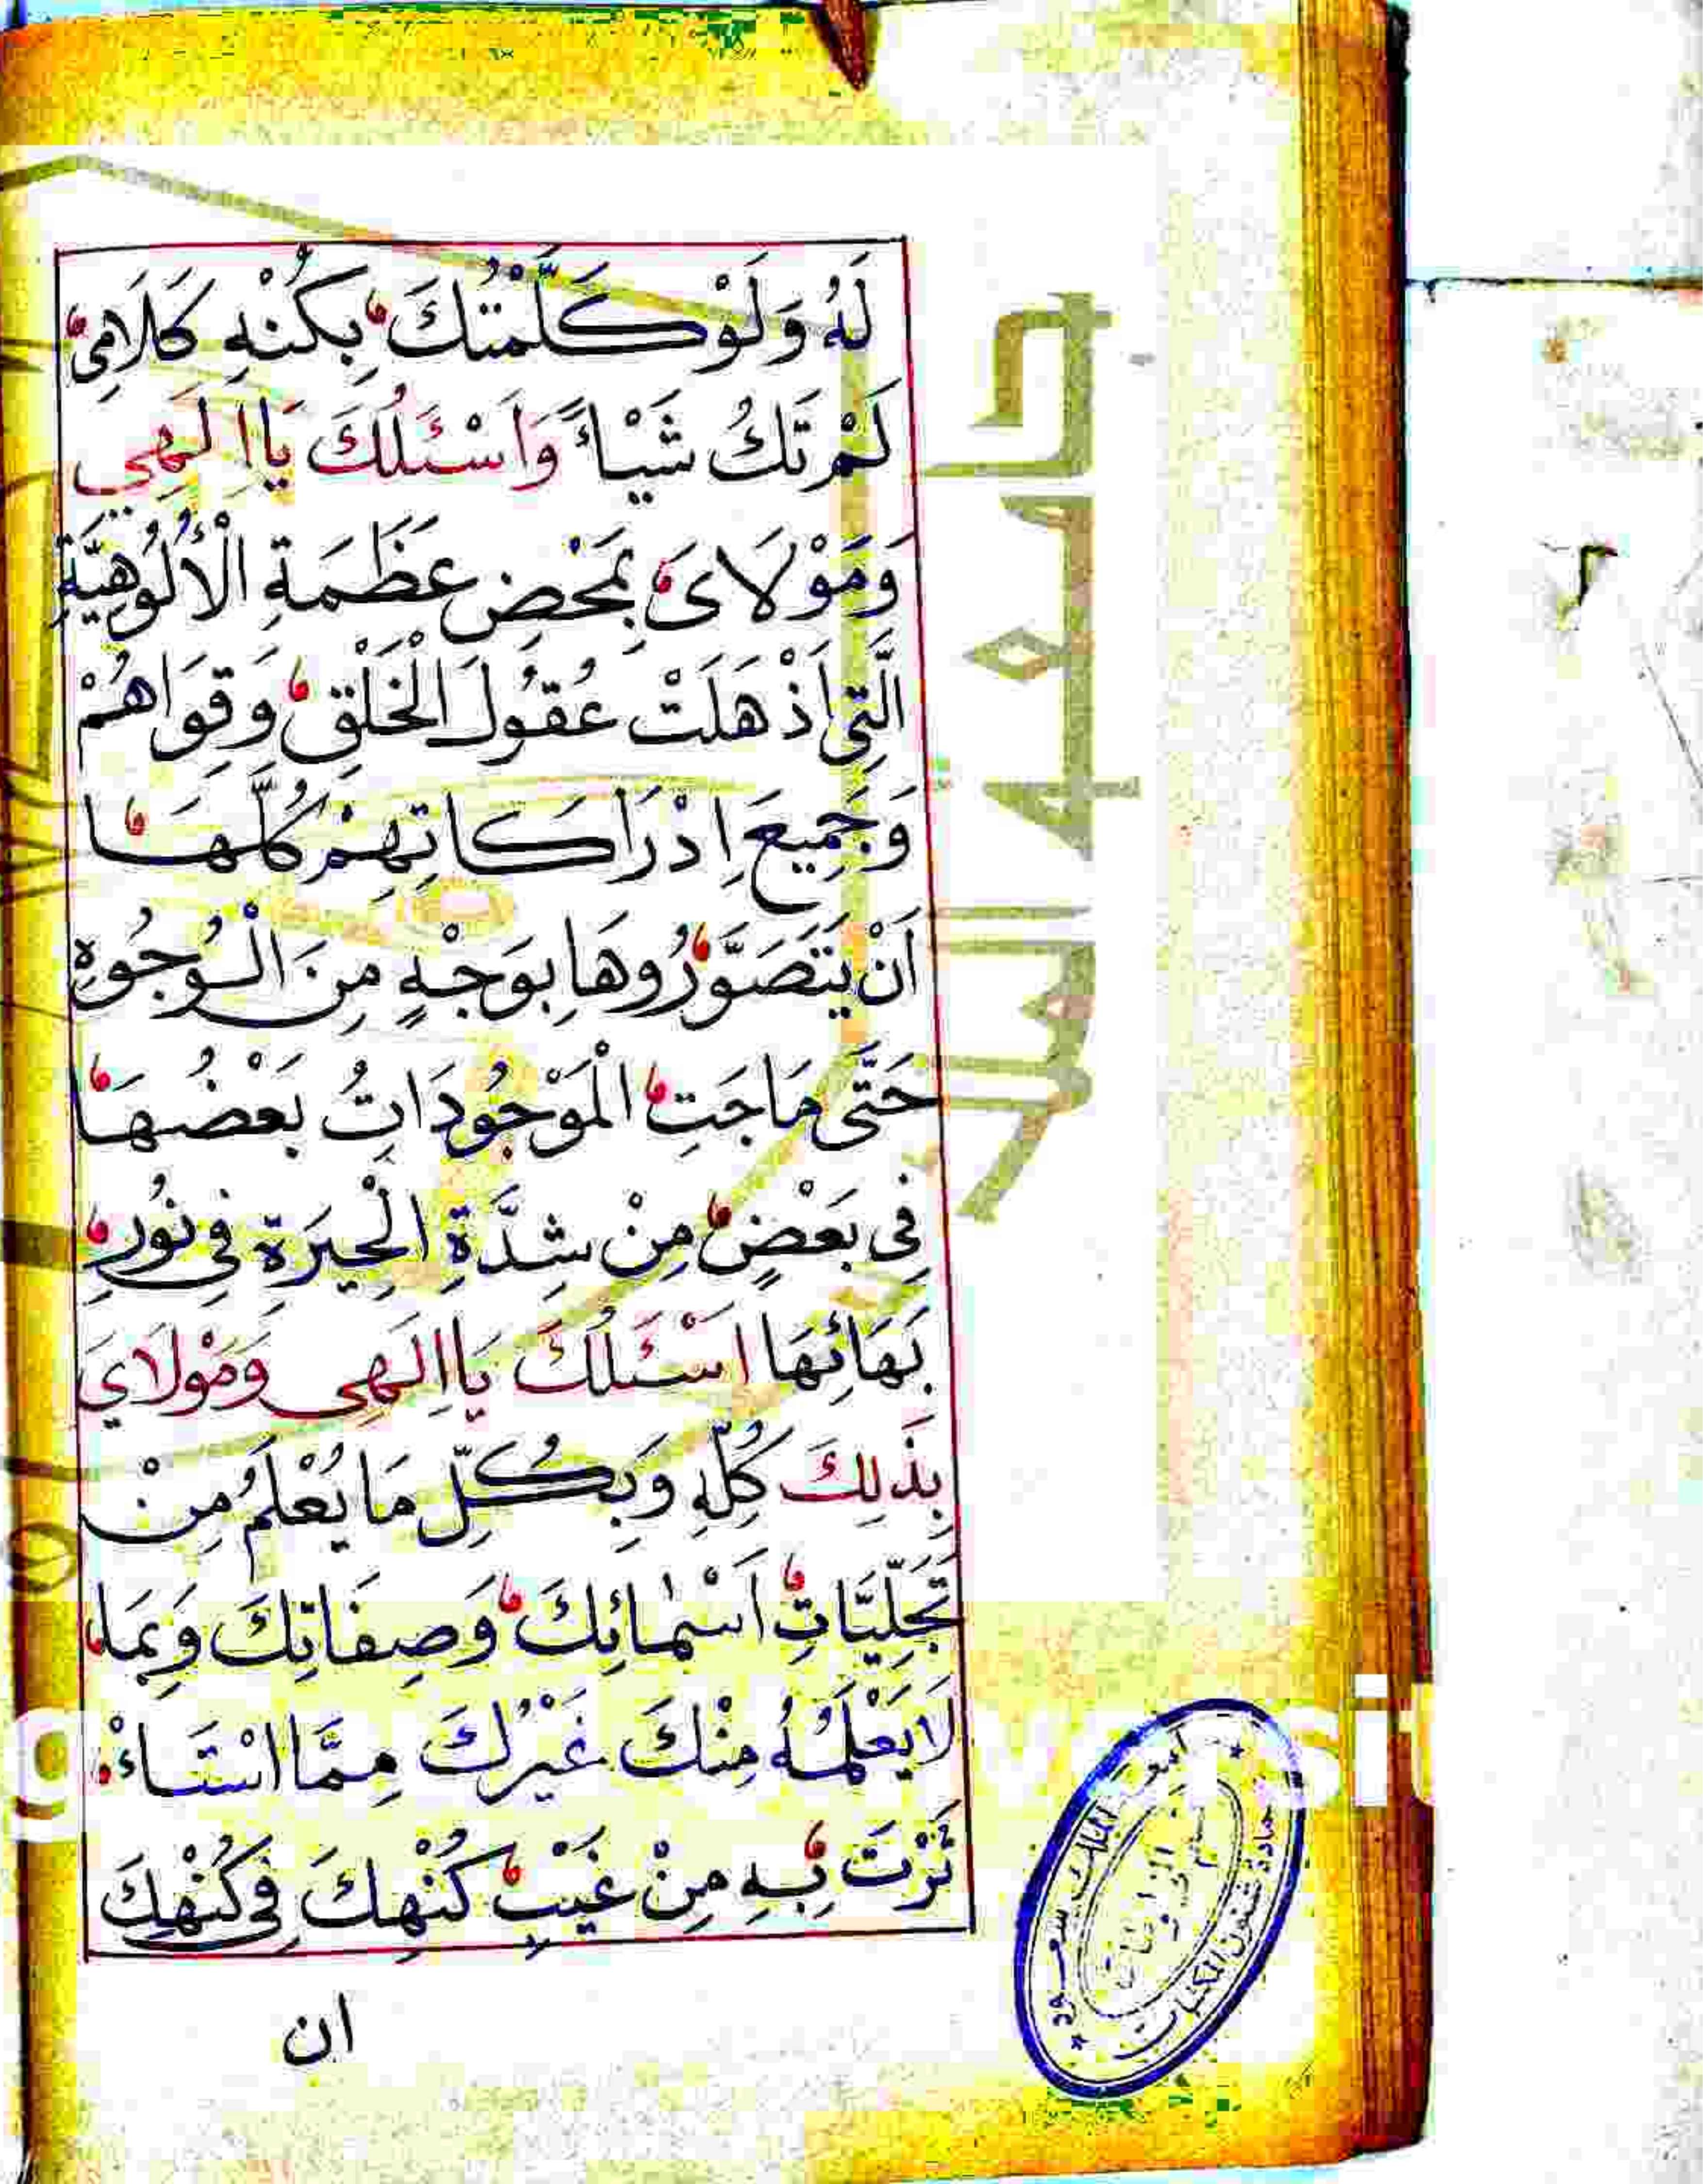 لَهُ وَلَوْ كَلَّمْتُكَ بِكُنْهِ كَلَامِي
لَمْ تَكُ شَيْاءً وَاَسْئَلُكَ يَا اِلَهِي
وَمَوْلَايَ بِمَحْضِ عَظَمَةِ الْأُلُوهِيَّةِ
الَّتِي اَذْهَلَتْ عُقُولَ الْخَلْقِ وَقِوَاهُمْ
وَجَمِيعَ اِدْرَاكَاتِهِمْ كُلَّهَا
اَنْ يَتَصَوَّرُوهَا بِوَجْهٍ مِنَ الْوُجُوهِ
حَتَّى مَاجَتِ الْمَوْجُودَاتُ بَعْضُهَا
فِي بَعْضٍ مِنْ شِدَّةِ الْحِيرَةِ فِي نُورِ
بَهَائِهَا اَسْئَلُكَ يَا اِلَهِي وَمَوْلَايَ
بِذَلِكَ كُلِّهِ وَبِكُلِّ مَا يُعْلَمُ مِنْ
تَجَلِّيَّاتِ اَسْمَائِكَ وَصِفَاتِكَ وَبِمَا
لَا يَعْلَمُهُ مِنْكَ غَيْرُكَ مِمَّا اسْتَاءْ
ثَرْتَ بِهِ مِنْ غَيْبِ كُنْهِكَ فِي كُنْهِكَ
ان
جامعة الملك سعود
عمادة شئون المكتبات